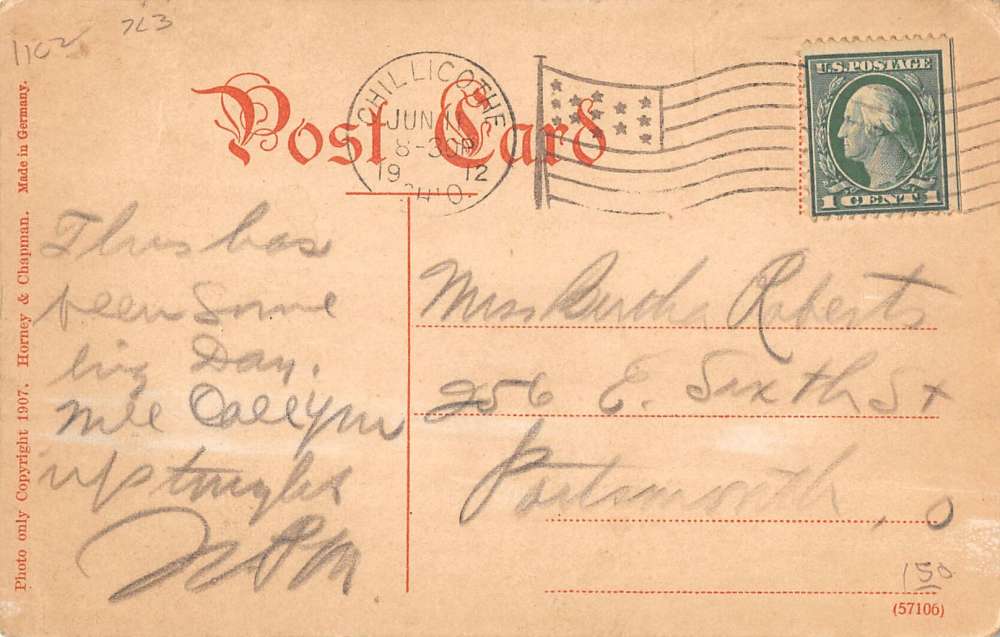 1102 763
Post Card
CHILLICOTHE
JUN 11
8-30P
19 12
OHIO
U.S.POSTAGE
1 CENT 1
Photo only Copyright 1907. Horney & Chapman. Made in Germany.
This has
been Some
big Day.
Will Call you
up tonight
Miss Bertha Roberts
256 E. Sixth St
Portsmouth, O
150
(57106)